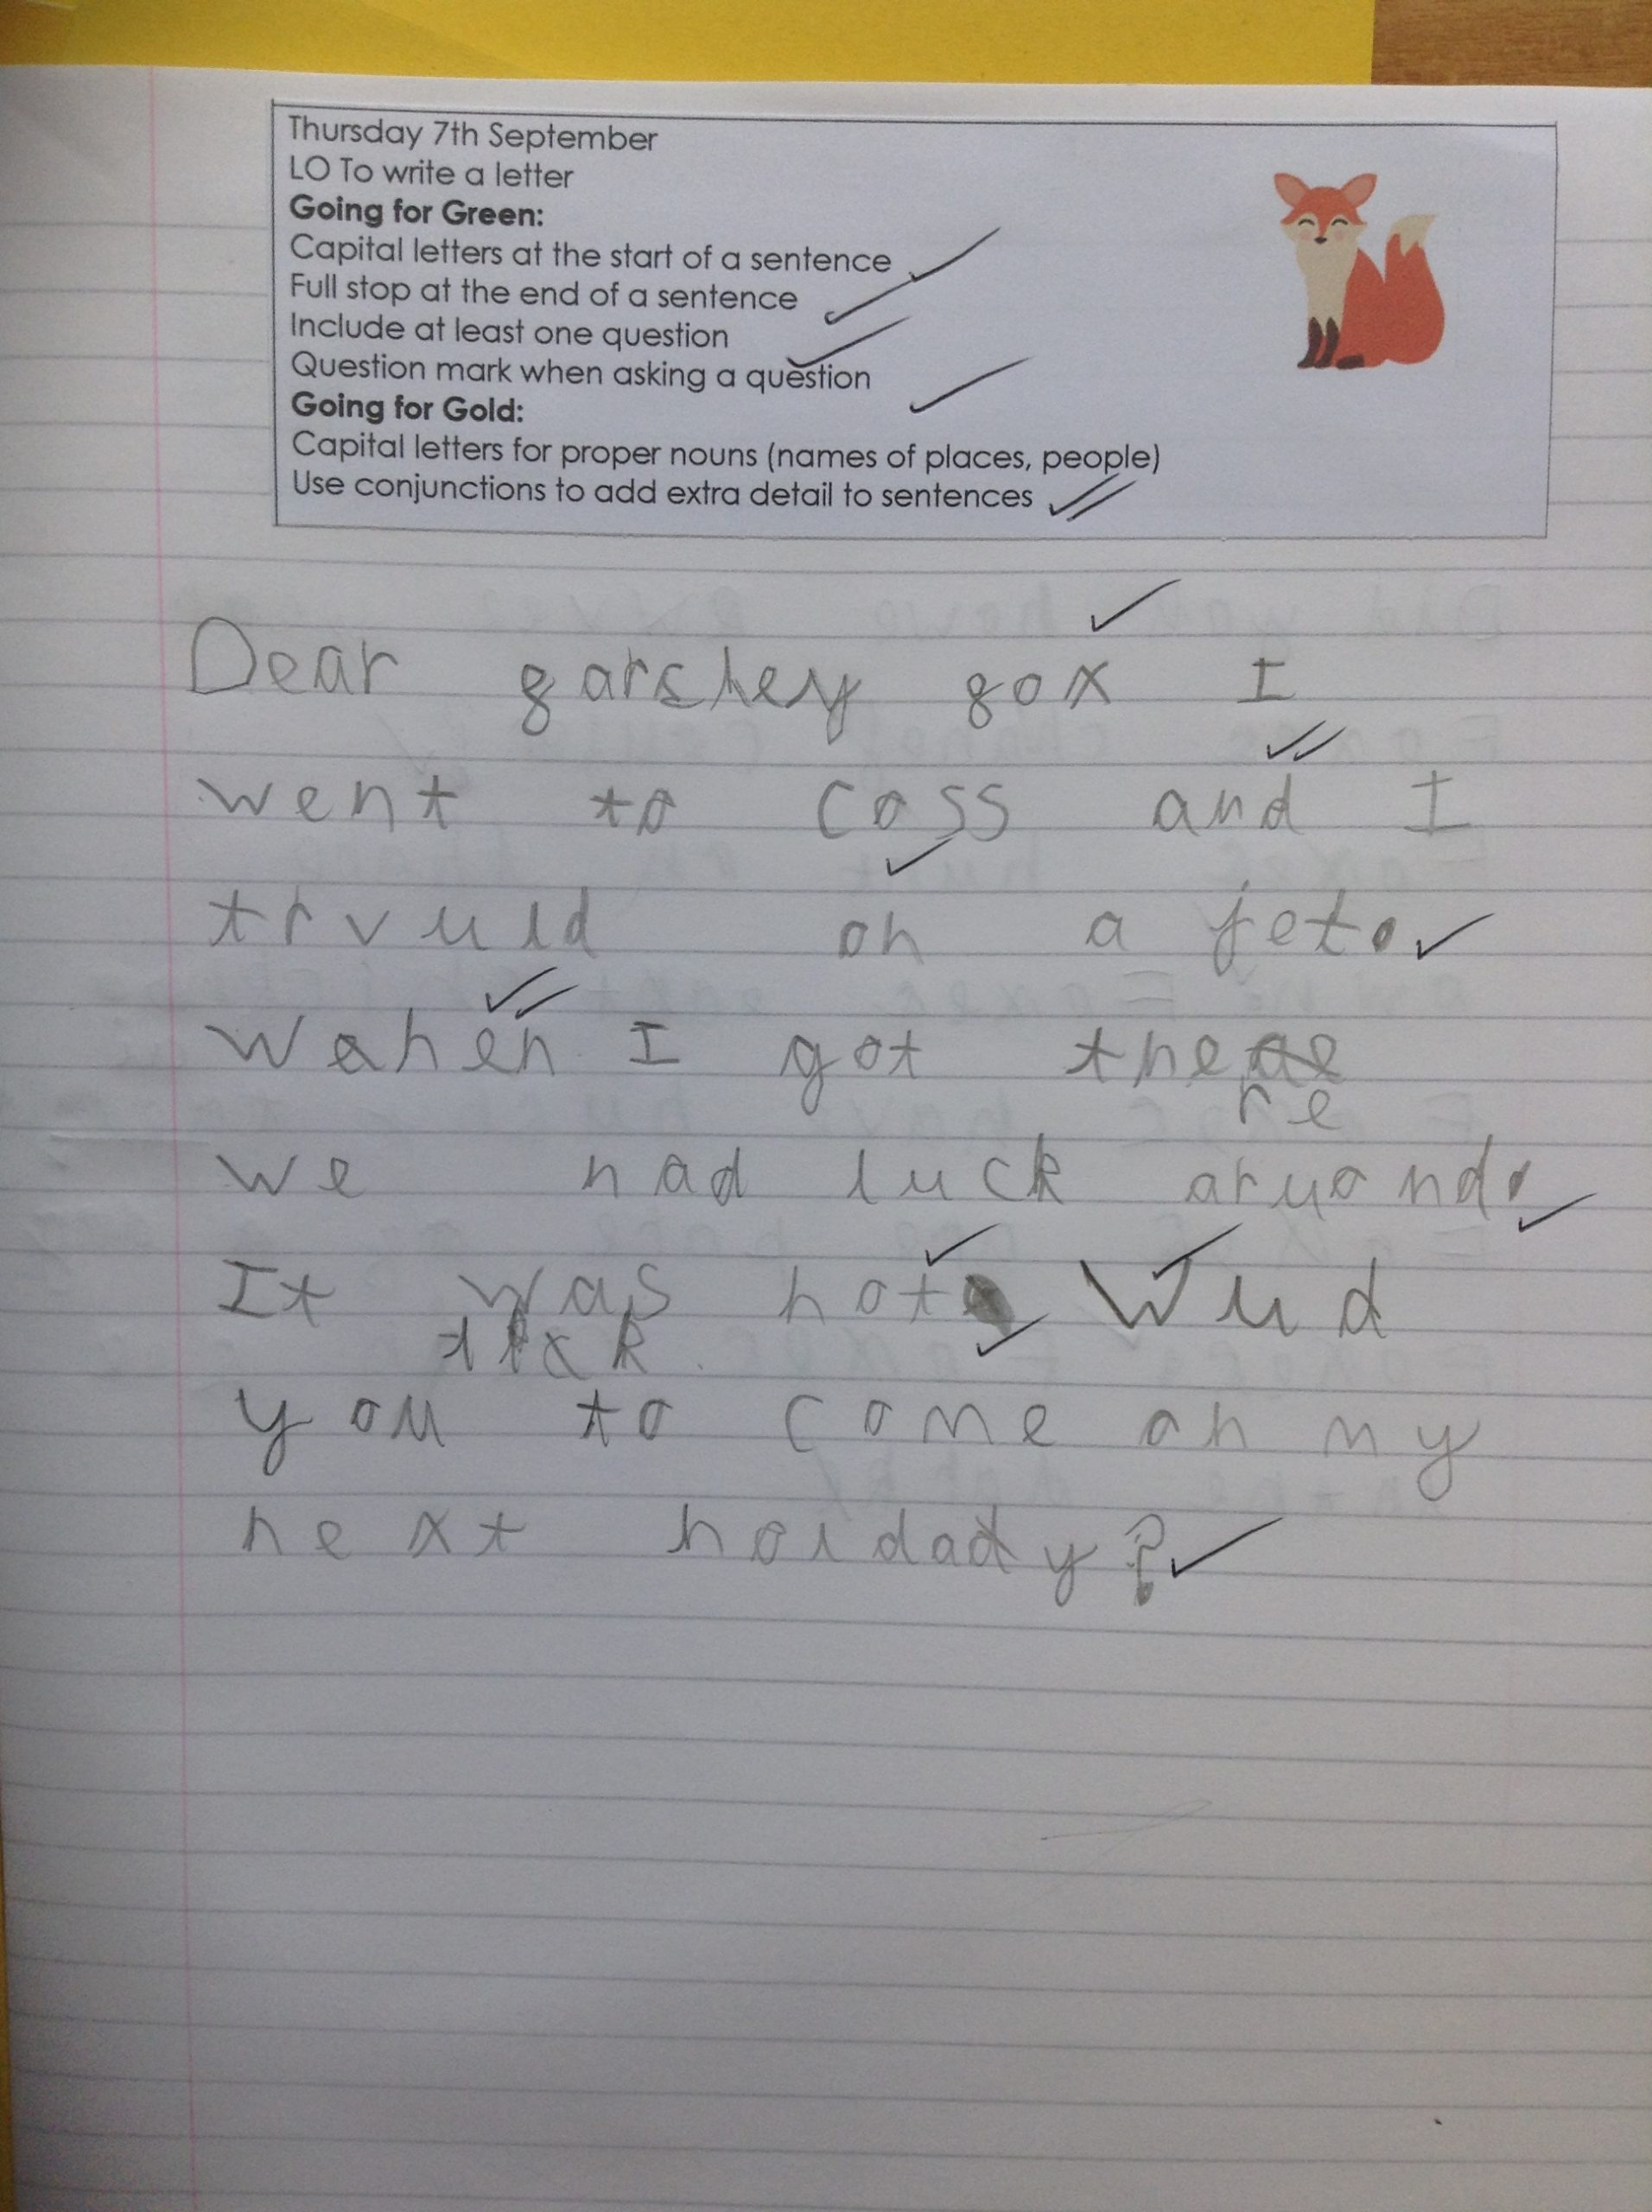 Thursday 7th September
LO To write a letter
Going for Green:
Capital letters at the start of a sentence
Full stop at the end of a sentence
Include at least one question
Question mark when asking a question
Going for Gold:
Capital letters for proper nouns (names of places, people)
Use conjunctions to add extra detail to sentences
Dear garshey gox I
went to Coss and I
trvuld on a jet.
Wahen I got there
we had luck aruond.
It was hot. Wud
you to come on my
next holdady?